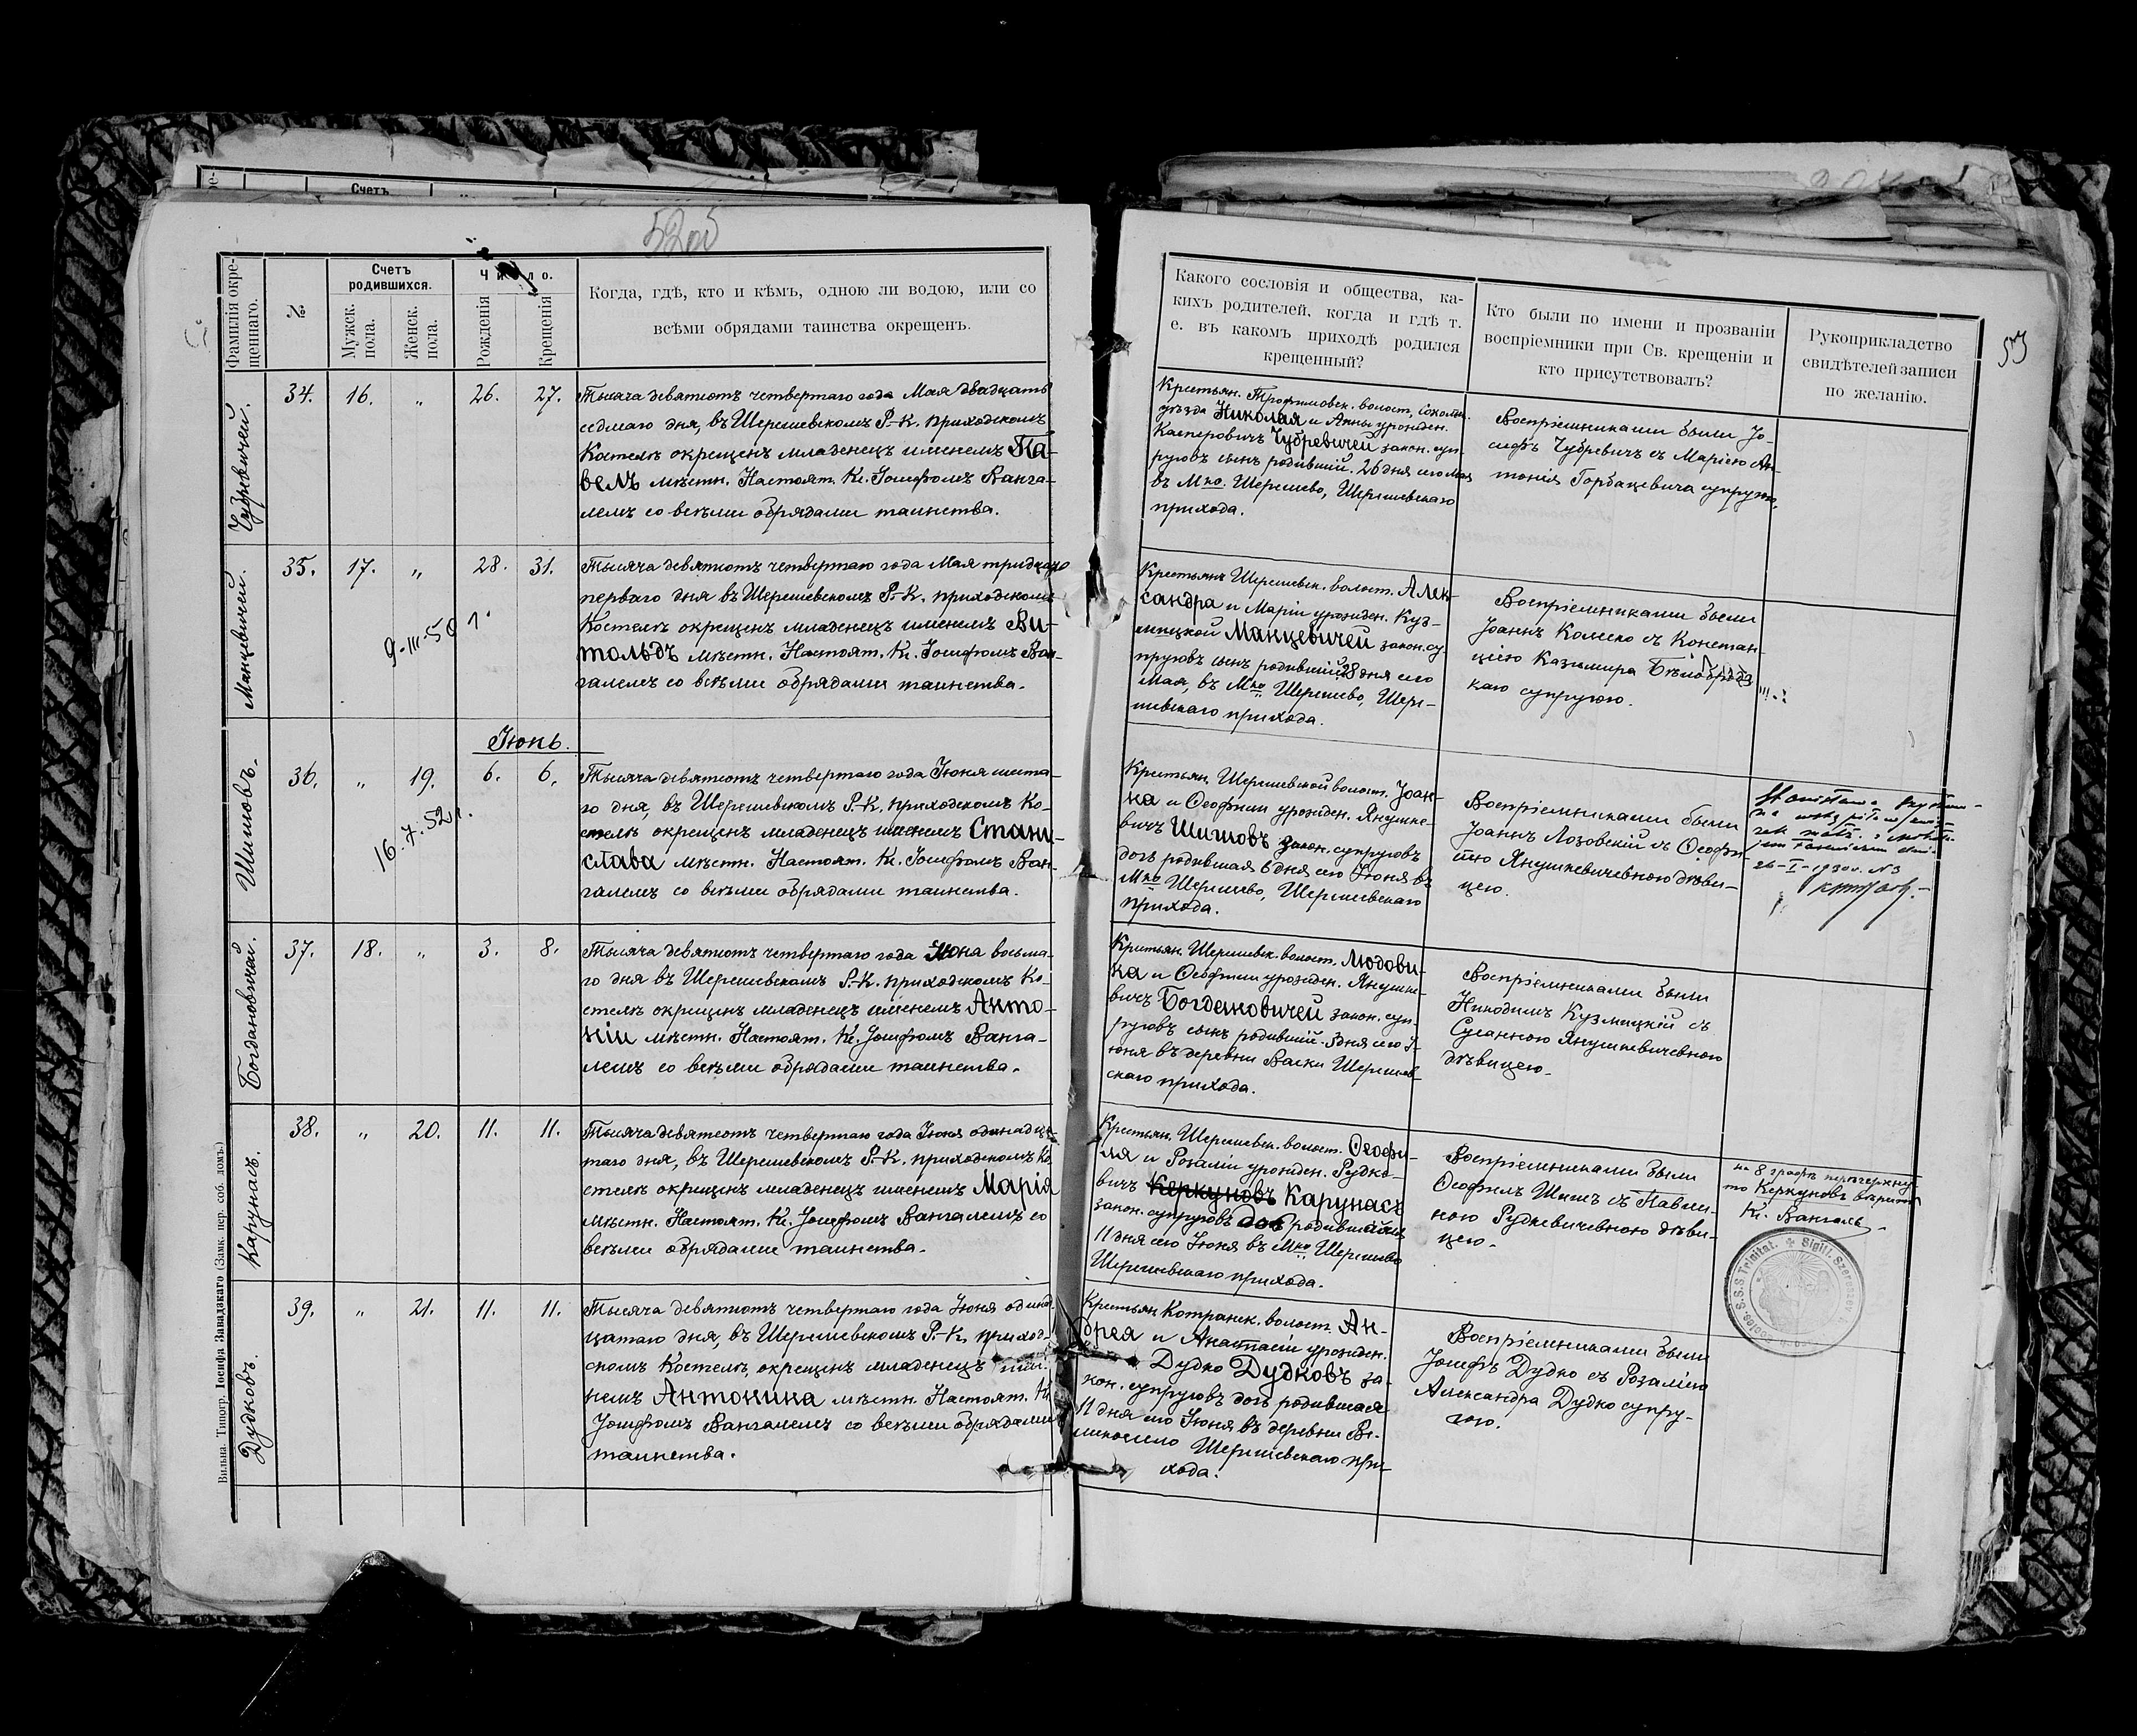 Счетъ
52об
53
Фамилія окре-
щеннаго.
№
Счетъ
родившихся.
Мужск.
пола.
Женск.
пола.
Число.
Рожденія
Крещенія
Когда, гдѣ, кто и кѣмъ, одною ли водою, или со
всѣми обрядами таинства окрещенъ.
Какого сословія и общества, ка-
кихъ родителей, когда и гдѣ т.
е. въ какомъ приходѣ родился
крещенный?
Кто были по имени и прозваніи
воспріемники при Св. крещеніи и
кто присутствовалъ?
Рукоприкладство
свидѣтелей записи
по желанію.
Чубревичей.
34. 16. „ 26. 27.
Тысяча девятьсотъ четвертаго года Мая двадцать
седьмаго дня, въ Шерешевскомъ Р.-К. приходскомъ
Костелѣ окрещенъ младенецъ именемъ Па-
велъ мѣстн. Настоят. Кс. Іосифомъ Ванга-
лемъ со всѣми обрядами таинства.
Крестьян. Трофимовск. волост,
уѣзда Николая и Анны урожден.
Касперовичъ Чубревичей закон. суп-
руговъ сынъ родившій. 26 дня сего Мая
въ Мко. Шерешево, Шерешевскаго
прихода.
Воспріемниками были Іо-
сифъ Чубревичъ съ Маріею Ан-
тонія Горбацевича супругою,
Манцевичей.
35. 17. „ 28. 31.
9-III-50
Тысяча девятьсотъ четвертаго года Мая тридцать
перваго дня въ Шерешевскомъ Р.-К. приходскомъ
Костелѣ окрещенъ младенецъ именемъ Ви-
тольдъ мѣстн. Настоят. Кс. Іосифомъ Ван-
галемъ со всѣми обрядами таинства.
Крестьянъ Шерешевск. волост. Алек-
сандра и Маріи урожден. Куз-
мицкой Манцевичей закон. су-
пруговъ сынъ родившій. 28 дня сего
Мая, въ Мко Шерешево, Шере-
шевскаго прихода.
Воспріемниками были
Іоаннъ Комско съ Констан-
ціею Казимира
каго супругою.
Іюнь.
Шишовъ.
36. „ 19. 6. 6.
16.7.52г.
Тысяча девятьсотъ четвертаго года Іюня шеста-
го дня, въ Шерешевскомъ Р.-К. приходскомъ Ко-
стелѣ окрещенъ младенецъ именемъ Стани-
слава мѣстн. Настоят. Кс. Іосифомъ Ван-
галемъ со всѣми обрядами таинства.
Крестьян. Шерешевской волост. Іоан-
на и Ѳеофиліи урожден. Янушке-
вичъ Шишовъ закон. супруговъ
дочь родившая 6 дня сего Іюня въ
Мко Шерешево, Шерешевскаго
прихода.
Воспріемниками были
Іоаннъ Лозовскій съ Ѳеофи-
лію Янушкевичевною дѣви-
цею.
26-I-1930 r. N 3
Богдановичей.
37. 18. „ 3. 8.
Тысяча девятьсотъ четвертаго года Іюня восьма-
го дня въ Шерешевскомъ Р.-К. приходскомъ Ко-
стелѣ окрещенъ младенецъ именемъ Анто-
ній мѣстн. Настоят. Кс. Іосифомъ Ванга-
лемъ со всѣми обрядами таинства.
Крестьян. Шерешевск. волост. Людови-
ка и Ѳеофиліи урожден. Янушке-
вичъ Богдановичей закон. суп-
руговъ сынъ родившій. 3 дня сего І-
юня въ деревни Васки Шерешев-
скаго прихода.
Воспріемниками были
Никодимъ Кузмицкій съ
Сусанною Янушкевичевною
дѣвицею.
Карунасъ.
38. „ 20. 11. 11.
Тысяча девятьсотъ четвертаго года Іюня одинадца-
таго дня, въ Шерешевскомъ Р.-К. приходскомъ Ко-
стелѣ окрещенъ младенецъ именемъ Марія
мѣстн. Настоят. Кс. Іосифомъ Вангалемъ со
всѣми обрядами таинства.
Крестьян. Шерешевск. волост. Ѳеофи-
ля и Розаліи урожден. Рудке-
вичъ Керкуновъ Карунасъ
закон. супруговъ дочь родившаяся
11 дня сего Іюня въ Мко Шерешево
Шерешевскаго прихода.
Воспріемниками были
Ѳеофилъ Шишъ съ Павли-
ною Рудкевичевною дѣви-
цею.
на 8 графѣ перечеркну-
то Керкуновъ вѣритъ
Кс. Вангаль
Sigill. Szereszev. Eccles. S.S.S. Trinitat.
Дудковъ.
39. „ 21. 11. 11.
Тысяча девятьсотъ четвертаго года Іюня одинад-
цатаго дня, въ Шерешевскомъ Р.-К. приход-
скомъ Костелѣ, окрещенъ младенецъ име-
немъ Антонина мѣстн. Настоят. Кс.
Іосифомъ Вангалемъ со всѣми обрядами
таинства.
Крестьян. Котранск. волост. Ан-
дрея и Анастасіи урожден.
Дудко Дудковъ за-
кон. супруговъ дочь родившая
11 дня сего Іюня въ деревни Ве-
ликосело Шерешевскаго при-
хода.
Воспріемниками были
Іосифъ Дудко съ Розаліею
Александра Дудко супру-
гою.
Вильна. Типогр. Іосифа Завадзкаго (Замк. пер. соб. домъ.)